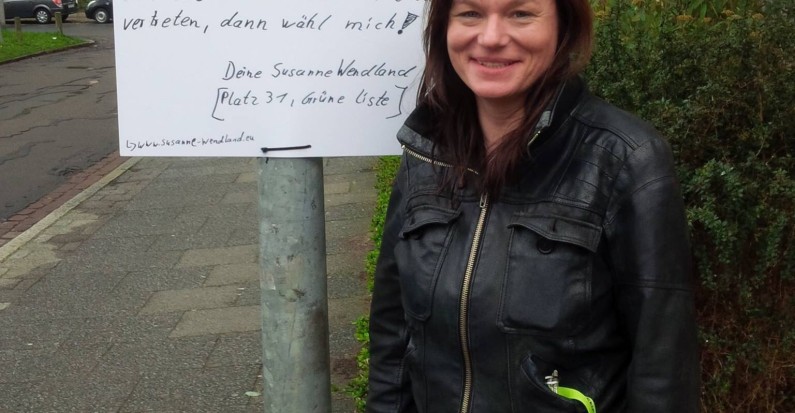 vertreten, dann wähl mich!
Deine Susanne Wendland
[Platz 31, Grüne Liste]
↳www.susanne-wendland.eu